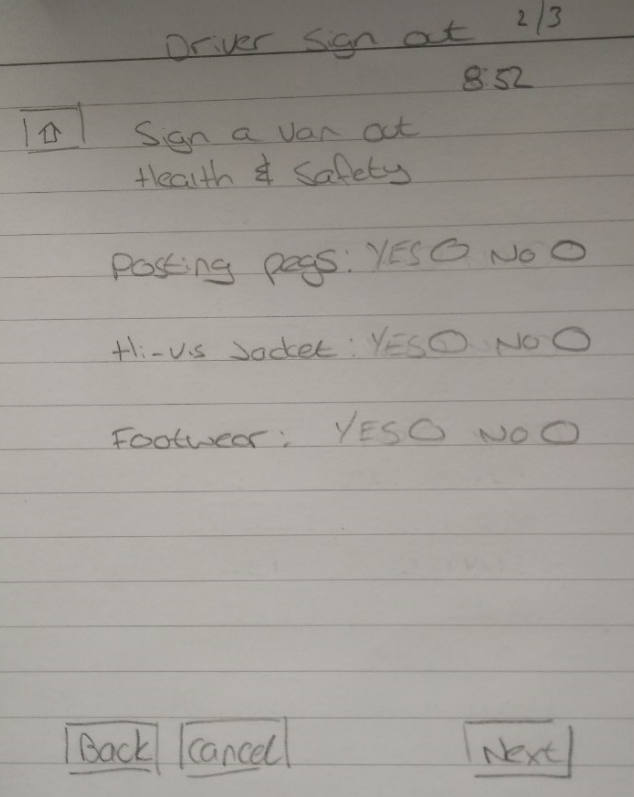 Driver Sign out 2/3
8:52
Sign a van out
Health & Safety
Posting pegs: YES NO
Hi-vis Jacket: YES NO
Footwear: YES NO
Back Cancel Next